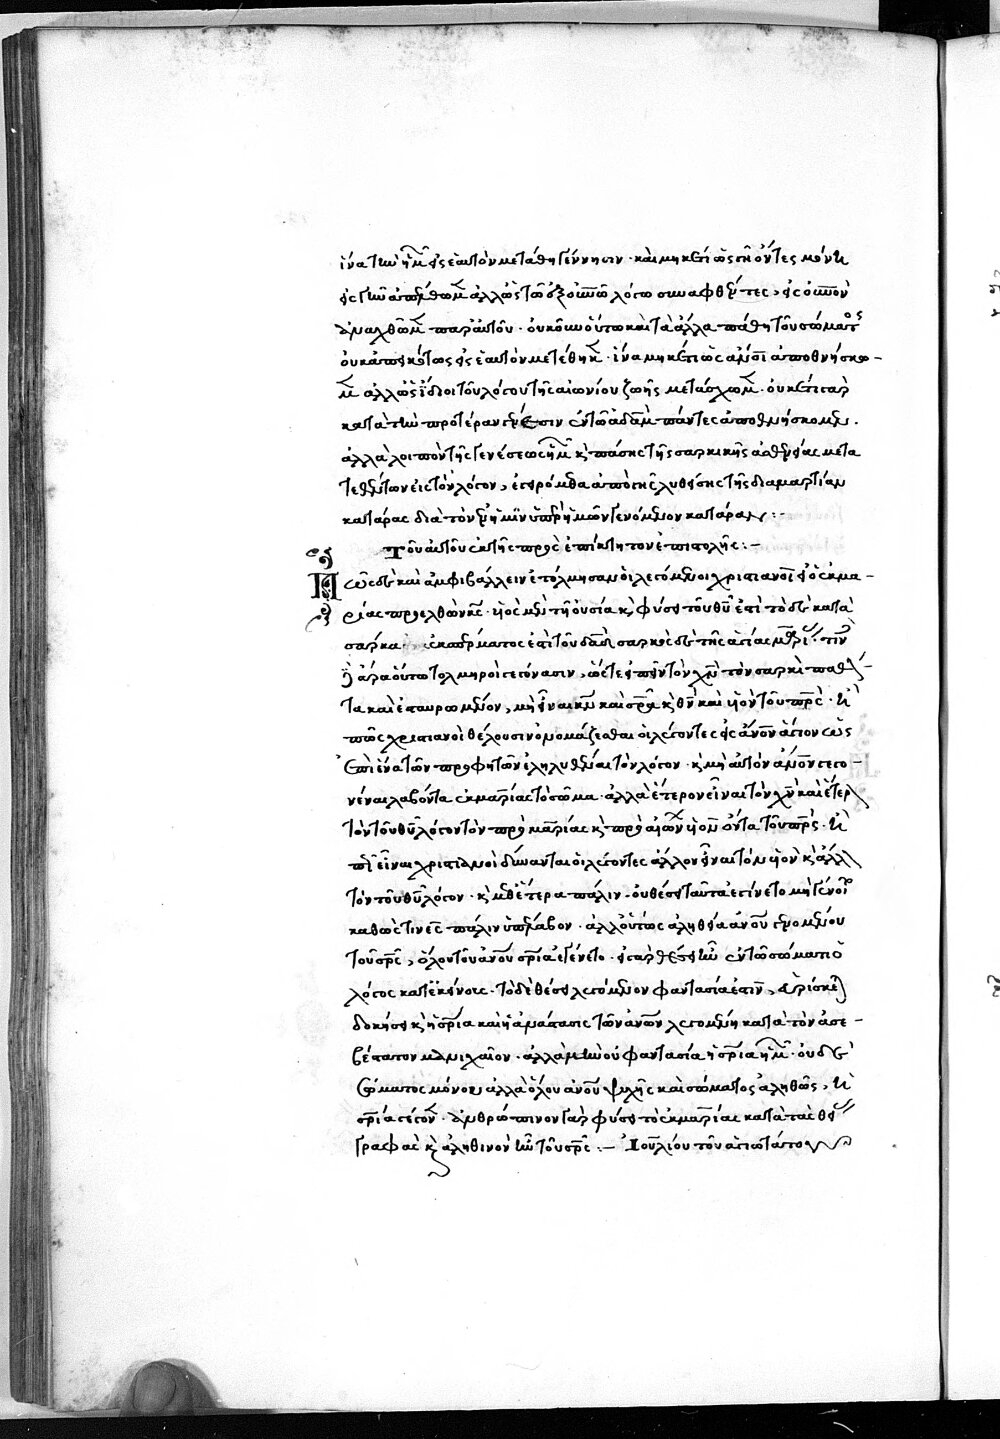 ἵνα τὴν ἡμῶν εἰς ἑαυτὸν μεταθῇ γέννησιν · καὶ μηκέτι ὡς γῆ ὄντες μόνη
εἰς γῆν ἀπέλθωμεν ἀλλ' ὡς τῷ ἐξ οὐρανοῦ λόγῳ συναφθέντες, εἰς οὐρανὸν
ἀναχθῶμεν παρ' αὐτοῦ · οὐκοῦν οὕτω καὶ τὰ ἄλλα πάθη τοῦ σώματος
οὐκ ἀπεικότως εἰς ἑαυτὸν μετέθηκεν · ἵνα μηκέτι ὡς ἄνθρωποι ἀποθνήσκω-
μεν ἀλλ' ὡς ἴδιοι τοῦ λόγου τῆς αἰωνίου ζωῆς μετάσχωμεν · οὐκέτι γὰρ
κατὰ τὴν προτέραν γένεσιν ἐν τῷ ἀδὰμ πάντες ἀποθνήσκομεν ·
ἀλλὰ λοιπὸν τῆς γενέσεως ἡμῶν καὶ πάσης τῆς σαρκικῆς ἀσθενείας μετα
τεθέντων εἰς τὸν λόγον, ἐγειρόμεθα ἀπὸ γῆς λυθείσης τῆς δι' ἁμαρτίαν
κατάρας διὰ τὸν ἐν ἡμῖν ὑπὲρ ἡμῶν γενόμενον κατάραν :-
Τοῦ αὐτοῦ ἐκ τῆς πρὸς ἐπίκτητον ἐπιστολῆς :-
Πῶς δὲ καὶ ἀμφιβάλλειν ἐτόλμησαν οἱ λεγόμενοι χριστιανοὶ εἰ ὁ ἐκ μα-
ρίας προελθὼν κύριος · υἱὸς μὲν τῇ οὐσίᾳ καὶ φύσει τοῦ θεοῦ ἐστὶ τὸ δὲ κατὰ
σάρκα ἐκ σπέρματος ἐστὶ τοῦ δαυὶδ σαρκὸς δὲ τῆς ἁγίας μαρίας · τίνες
δὲ ἄρα οὕτω τολμηροὶ γεγόνασιν, ὥστε εἰπεῖν τὸν χριστὸν τὸν σαρκὶ παθόν-
τα καὶ ἐσταυρωμένον, μὴ εἶναι κύριον καὶ σωτῆρα καὶ θεὸν καὶ υἱὸν τοῦ πατρός · ἢ
πῶς χριστιανοὶ θέλουσιν ὀνομάζεσθαι οἱ λέγοντες εἰς ἄνθρωπον ἅγιον ὡς
ἐπὶ ἕνα τῶν προφητῶν ἐληλυθέναι τὸν λόγον · καὶ μὴ αὐτὸν ἄνθρωπον γεγο-
νέναι λαβόντα ἐκ μαρίας τὸ σῶμα · ἀλλὰ ἕτερον εἶναι τὸν χριστὸν καὶ ἕτερον
τὸν τοῦ θεοῦ λόγον τὸν πρὸ μαρίας καὶ πρὸ αἰώνων υἱὸν ὄντα τοῦ πατρός · ἢ
πῶς εἶναι χριστιανοὶ δύνανται οἱ λέγοντες ἄλλον εἶναι τὸν υἱὸν καὶ ἄλλον
τὸν τοῦ θεοῦ λόγον · καὶ μεθ' ἕτερα πάλιν · οὐ θέσει ταῦτα ἐγίνετο μὴ γένοιτο
καθώς τινες πάλιν ὑπέλαβον · ἀλλ' ὄντως ἀληθείᾳ ἀνθρώπου γενομένου
τοῦ σωτῆρος, ὅλου τοῦ ἀνθρώπου σωτηρία ἐγένετο · εἰ γὰρ θέσει ἦν ἐν τῷ σώματι ὁ
λόγος κατ' ἐκείνους · τὸ δὲ θέσει λεγόμενον φαντασία ἐστίν, εὑρίσκεται
δοκήσει καὶ ἡ σωτηρία καὶ ἡ ἀνάστασις τῶν ἀνθρώπων λεγομένη κατὰ τὸν ἀσε-
βέστατον μανιχαῖον · ἀλλὰ μὴν οὐ φαντασία ἡ σωτηρία ἡμῶν · οὐδὲ
σώματος μόνου ἀλλὰ ὅλου ἀνθρώπου ψυχῆς καὶ σώματος ἀληθῶς, ἡ
σωτηρία γέγονεν · ἀνθρώπινον γὰρ φύσει τὸ ἐκ μαρίας κατὰ τὰς θείας
γραφὰς καὶ ἀληθινὸν ἦν τοῦ σωτῆρος :- Ἰουλίου τοῦ ἁγιωτάτου